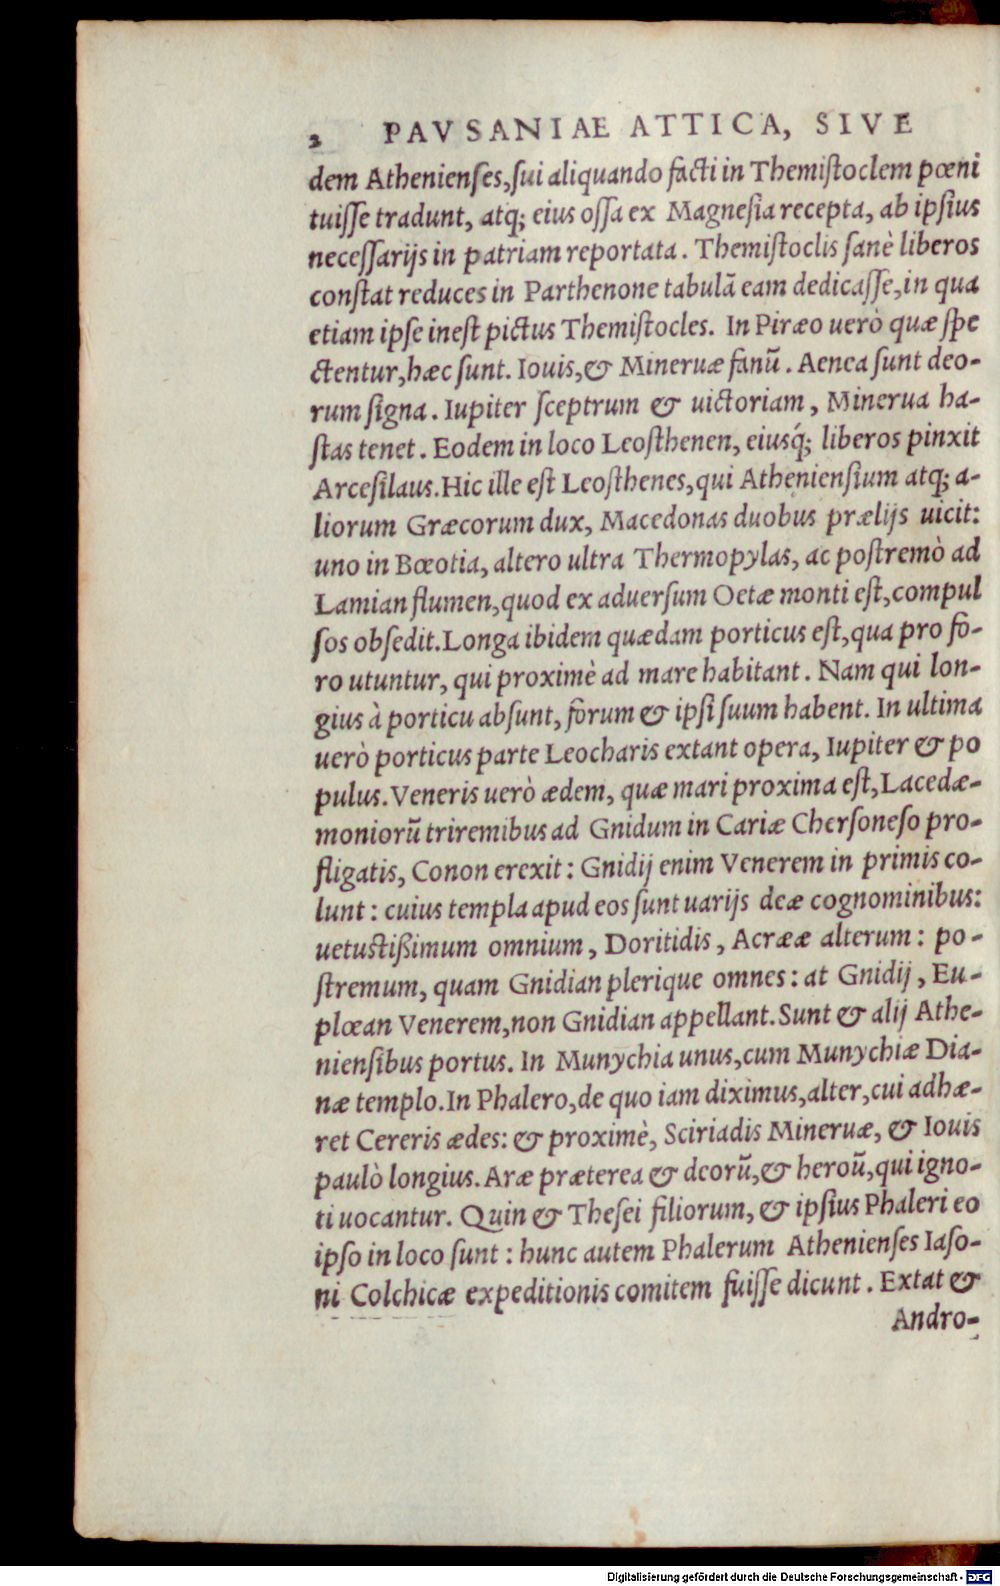 2 PAVSANIAE ATTICA, SIVE
dem Athenienses,sui aliquando facti in Themistoclem pœni
tuisse tradunt, atq; eius ossa ex Magnesia recepta, ab ipsius
necessarijs in patriam reportata. Themistoclis sanè liberos
constat reduces in Parthenone tabulā eam dedicasse,in qua
etiam ipse inest pictus Themistocles. In Piræo uerò quæ spe
ctentur,hæc sunt. Iouis,& Mineruæ fanū. Aenea sunt deo-
rum signa. Iupiter sceptrum & uictoriam, Minerua ha-
stas tenet. Eodem in loco Leosthenen, eiusq́; liberos pinxit
Arcesilaus.Hic ille est Leosthenes,qui Atheniensium atq; a-
liorum Græcorum dux, Macedonas duobus prælijs uicit:
uno in Bœotia, altero ultra Thermopylas, ac postremò ad
Lamian flumen,quod ex aduersum Oetæ monti est,compul
sos obsedit.Longa ibidem quædam porticus est,qua pro fo-
ro utuntur, qui proximè ad mare habitant. Nam qui lon-
gius à porticu absunt, forum & ipsi suum habent. In ultima
uerò porticus parte Leocharis extant opera, Iupiter & po
pulus.Veneris uerò ædem, quæ mari proxima est,Lacedæ-
moniorū triremibus ad Gnidum in Cariæ Chersoneso pro-
fligatis, Conon erexit: Gnidij enim Venerem in primis co-
lunt: cuius templa apud eos sunt uarijs deæ cognominibus:
uetustißimum omnium, Doritidis, Acrææ alterum: po-
stremum, quam Gnidian plerique omnes: at Gnidij, Eu-
plœan Venerem,non Gnidian appellant.Sunt & alij Athe-
niensibus portus. In Munychia unus,cum Munychiæ Dia-
næ templo.In Phalero,de quo iam diximus,alter,cui adhæ-
ret Cereris ædes: & proximè, Sciriadis Mineruæ, & Iouis
paulò longius. Aræ præterea & deorū,& heroū,qui igno-
ti uocantur. Quin & Thesei filiorum, & ipsius Phaleri eo
ipso in loco sunt: hunc autem Phalerum Athenienses Iaso-
ni Colchicæ expeditionis comitem fuisse dicunt. Extat &
Andro-
Digitalisierung gefördert durch die Deutsche Forschungsgemeinschaft - DFG